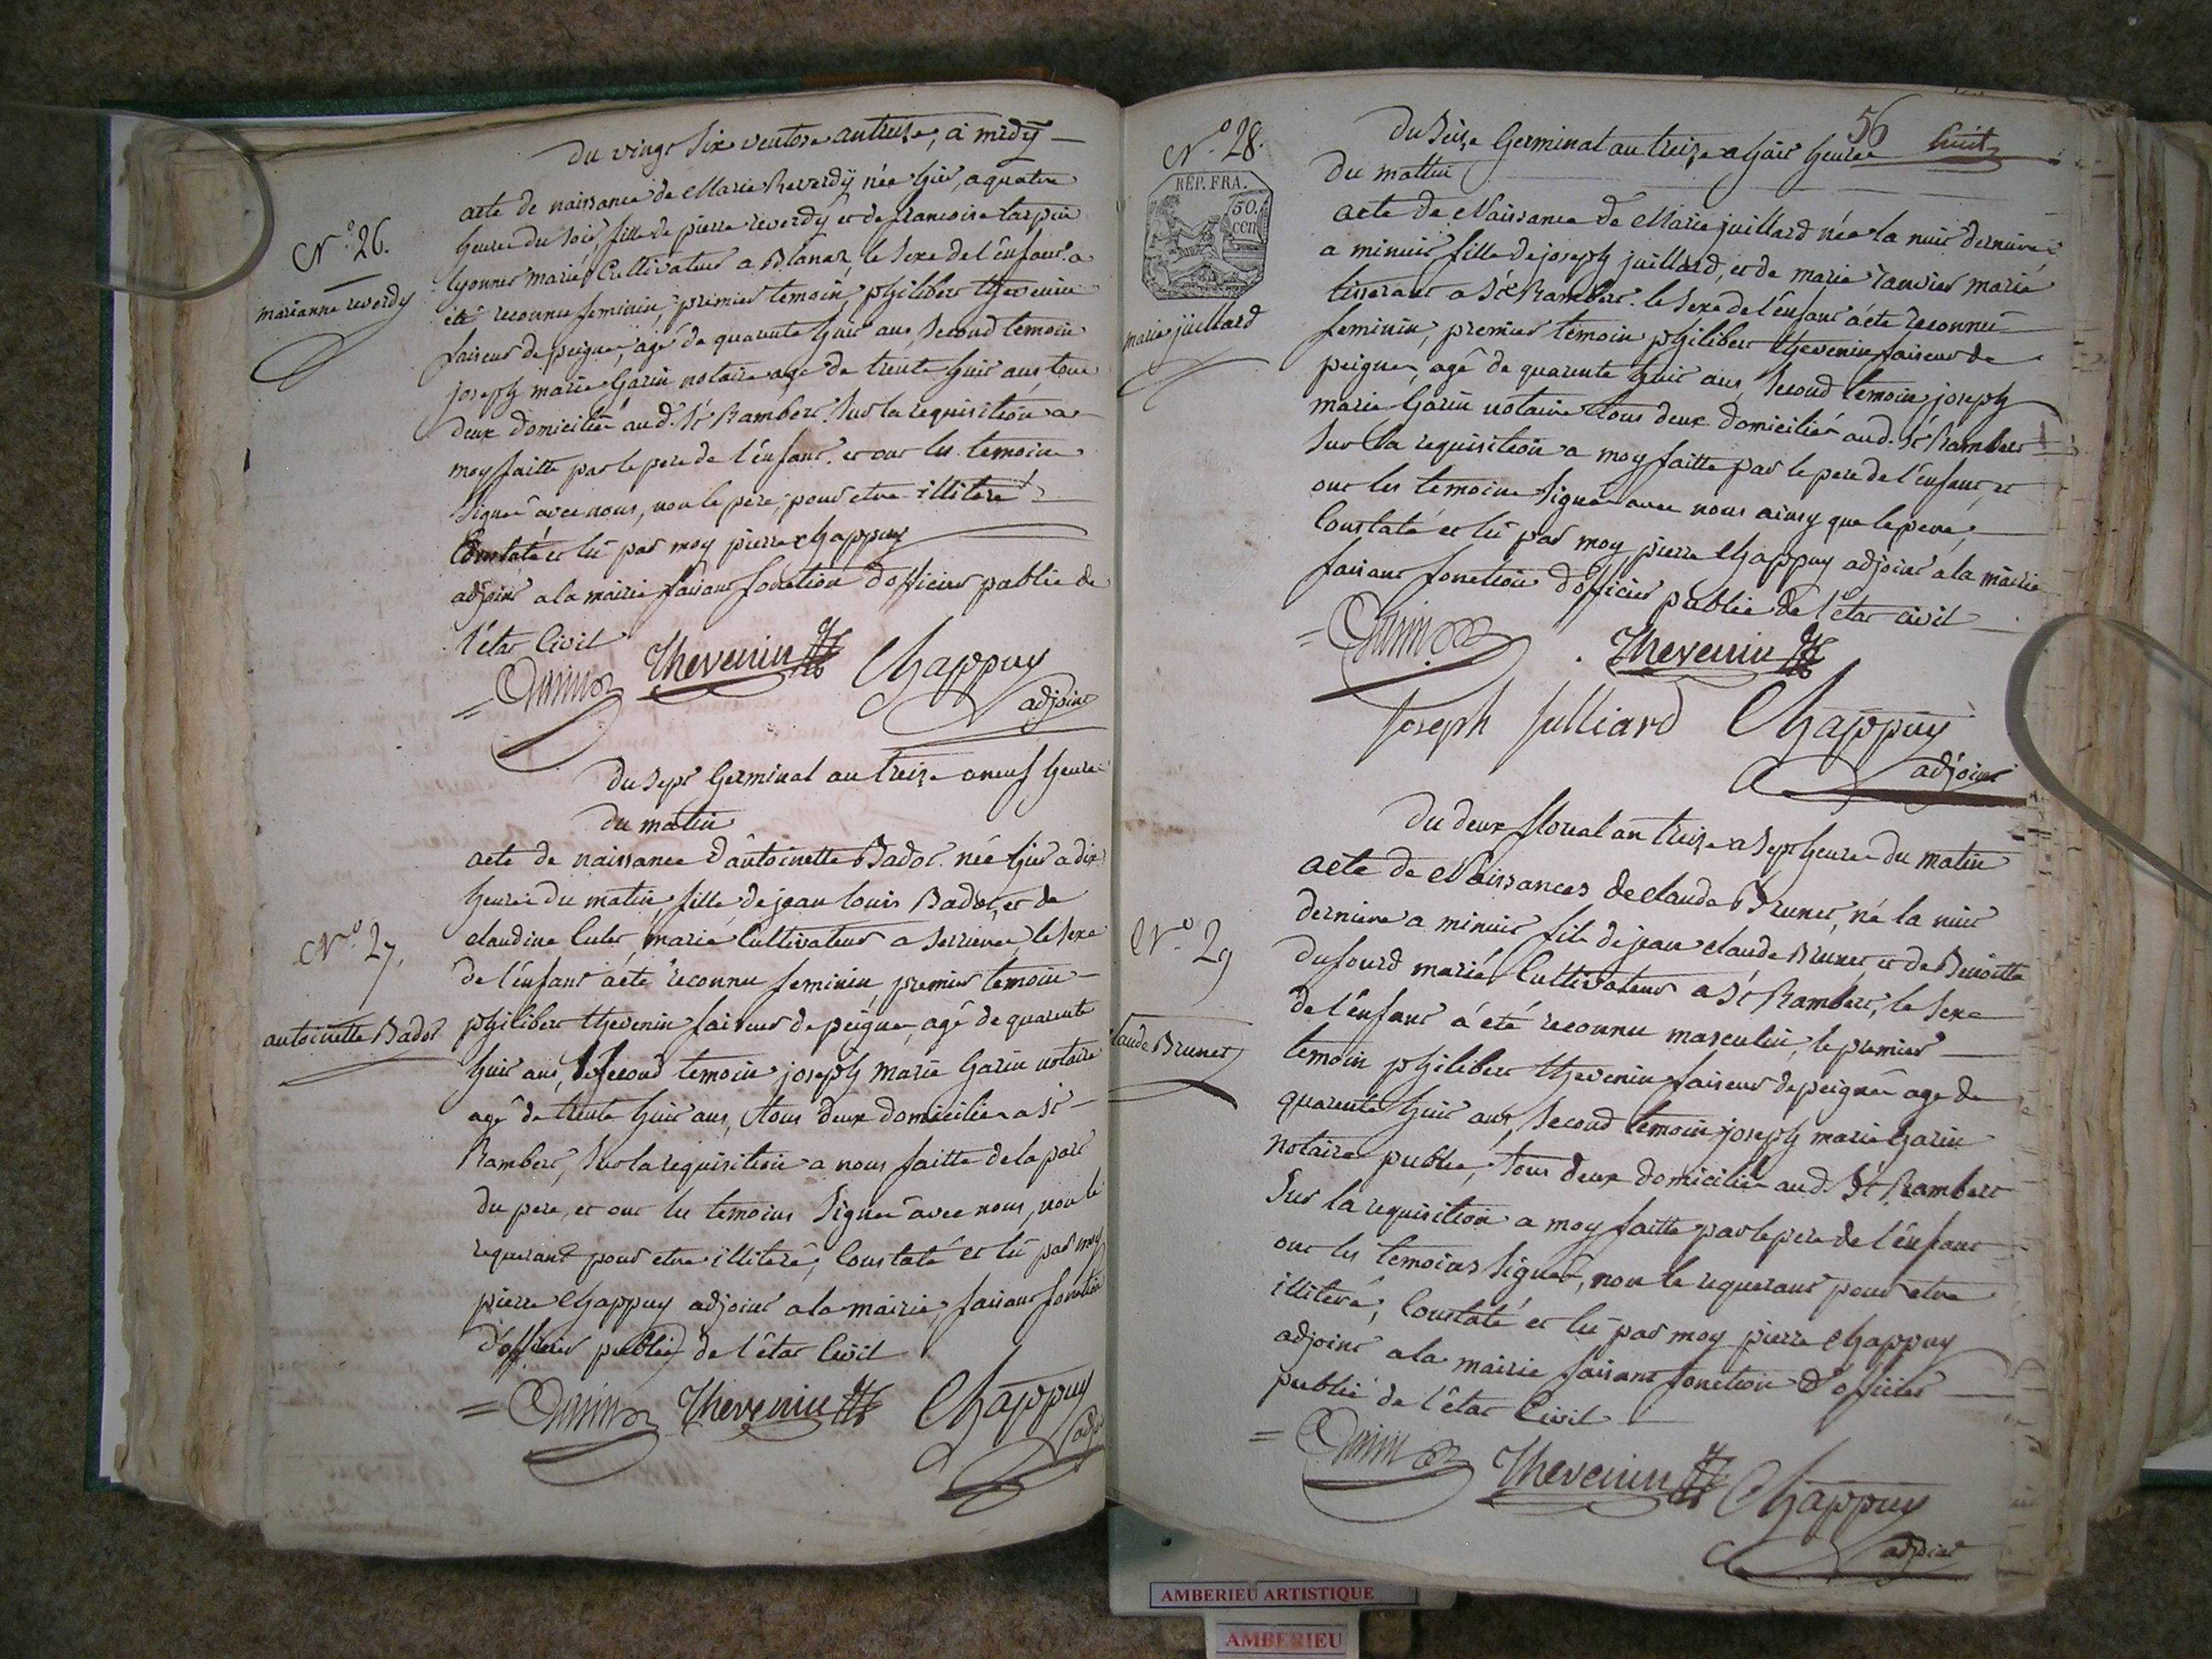 du vingt six ventose an treize, a midy
N.o 26.
marianne reverdy
acte de naissance de Marie Reverdÿ née hier, a quatre
heures du soir, fille de pierre reverdÿ et de francoise tarpin
lyonnet mariés Cultivateur a Blanaz, le sexe de l'enfant a
été reconnu feminin, premier temoin, philibert thevenin
faiseur de peignes, agé de quarante huit ans, second temoin
joseph marie Garin notaire agé de trente huit ans, tous
deux domiciliés aud. St Rambert. Sur la requisition a
moy faitte par le pere de l'enfant. et ont les temoins
signés avec nous, non le père, pour etre illiteré
Constaté et lû par moy pierre chappuy
adjoint a la mairie faisant fonction d'officier public de
l'état Civil
Thevenin Chappuy
adjoint
du sept Germinal an treize a neuf heures
du matin
N.o 27.
antoinette Badot
acte de naissance d'antoinette Badot. née hier a dix
heures du matin, fille de jean louis Badot, et de
claudine Culet, mariés Cultivateur a serrieres, le sexe
de l'enfant a été reconnu feminin, premier temoin
philibert thevenin faiseur de peignes, agé de quarante
huit ans, le second temoin joseph marie Garin notaire
agé de trente huit ans, tous deux domiciliés a St
Rambert, sur la requisition a nous faitte de la part
du pere, et ont les temoins signés avec nous, non le
requerant pour etre illiteré, Constaté et lû par moy
pierre Chappuy adjoint a la mairie, faisant fonction
d'officier public de l'état Civil
Thevenin Chappuy
adjt
56
huit
N.o 28.
RÉP. FRA.
50.
cen
marie juillard
Du seize Germinal an treize a huit heures
du mattin
acte de Naissance de Marie juillard née la nuit derniere
a minuit fille de joseph juillard, et de marie Janvier mariés
tisserant a St Rambert. le sexe de l'enfant a été reconnu
feminin, premier temoin philibert thevenin faiseur de
peignes, agé de quarante huit ans, second temoin joseph
marie Garin notaire tous deux domiciliés aud. St Rambert
Sur la requisition a moy faitte par le pere de l'enfant, et
ont les temoins signés avec nous ainsy que le pere,
Constaté et lû par moy pierre Chappuy adjoint a la mairie
faisant fonction d'officier public de l'état civil
Thevenin
Joseph Julliard Chappuy
adjoint
Du deux floreal an treize a sept heures du matin
N.o 29
claude Brunet
acte de Naissances de claude Brunet, né la nuit
derniere a minuit fils de jean claude Brunet, et de Benoitte
dufourd mariés Cultivateur a St Rambert, le sexe
de l'enfant a été reconnu masculin, le premier
temoin philibert thevenin faiseur de peignes agé de
quarente huit ans, second temoin joseph marie Garin
notaire public, tous deux domiciliés aud. St Rambert
Sur la requisition a moy faitte par le pere de l'enfant
ont les temoins signés, non le requerant pour etre
illiteré, Constaté et lû par moy pierre Chappuy
adjoint a la mairie faisant fonction d'officier
public de l'état Civil
Thevenin Chappuy
adjoint
AMBERIEU ARTISTIQUE
AMBERIEU